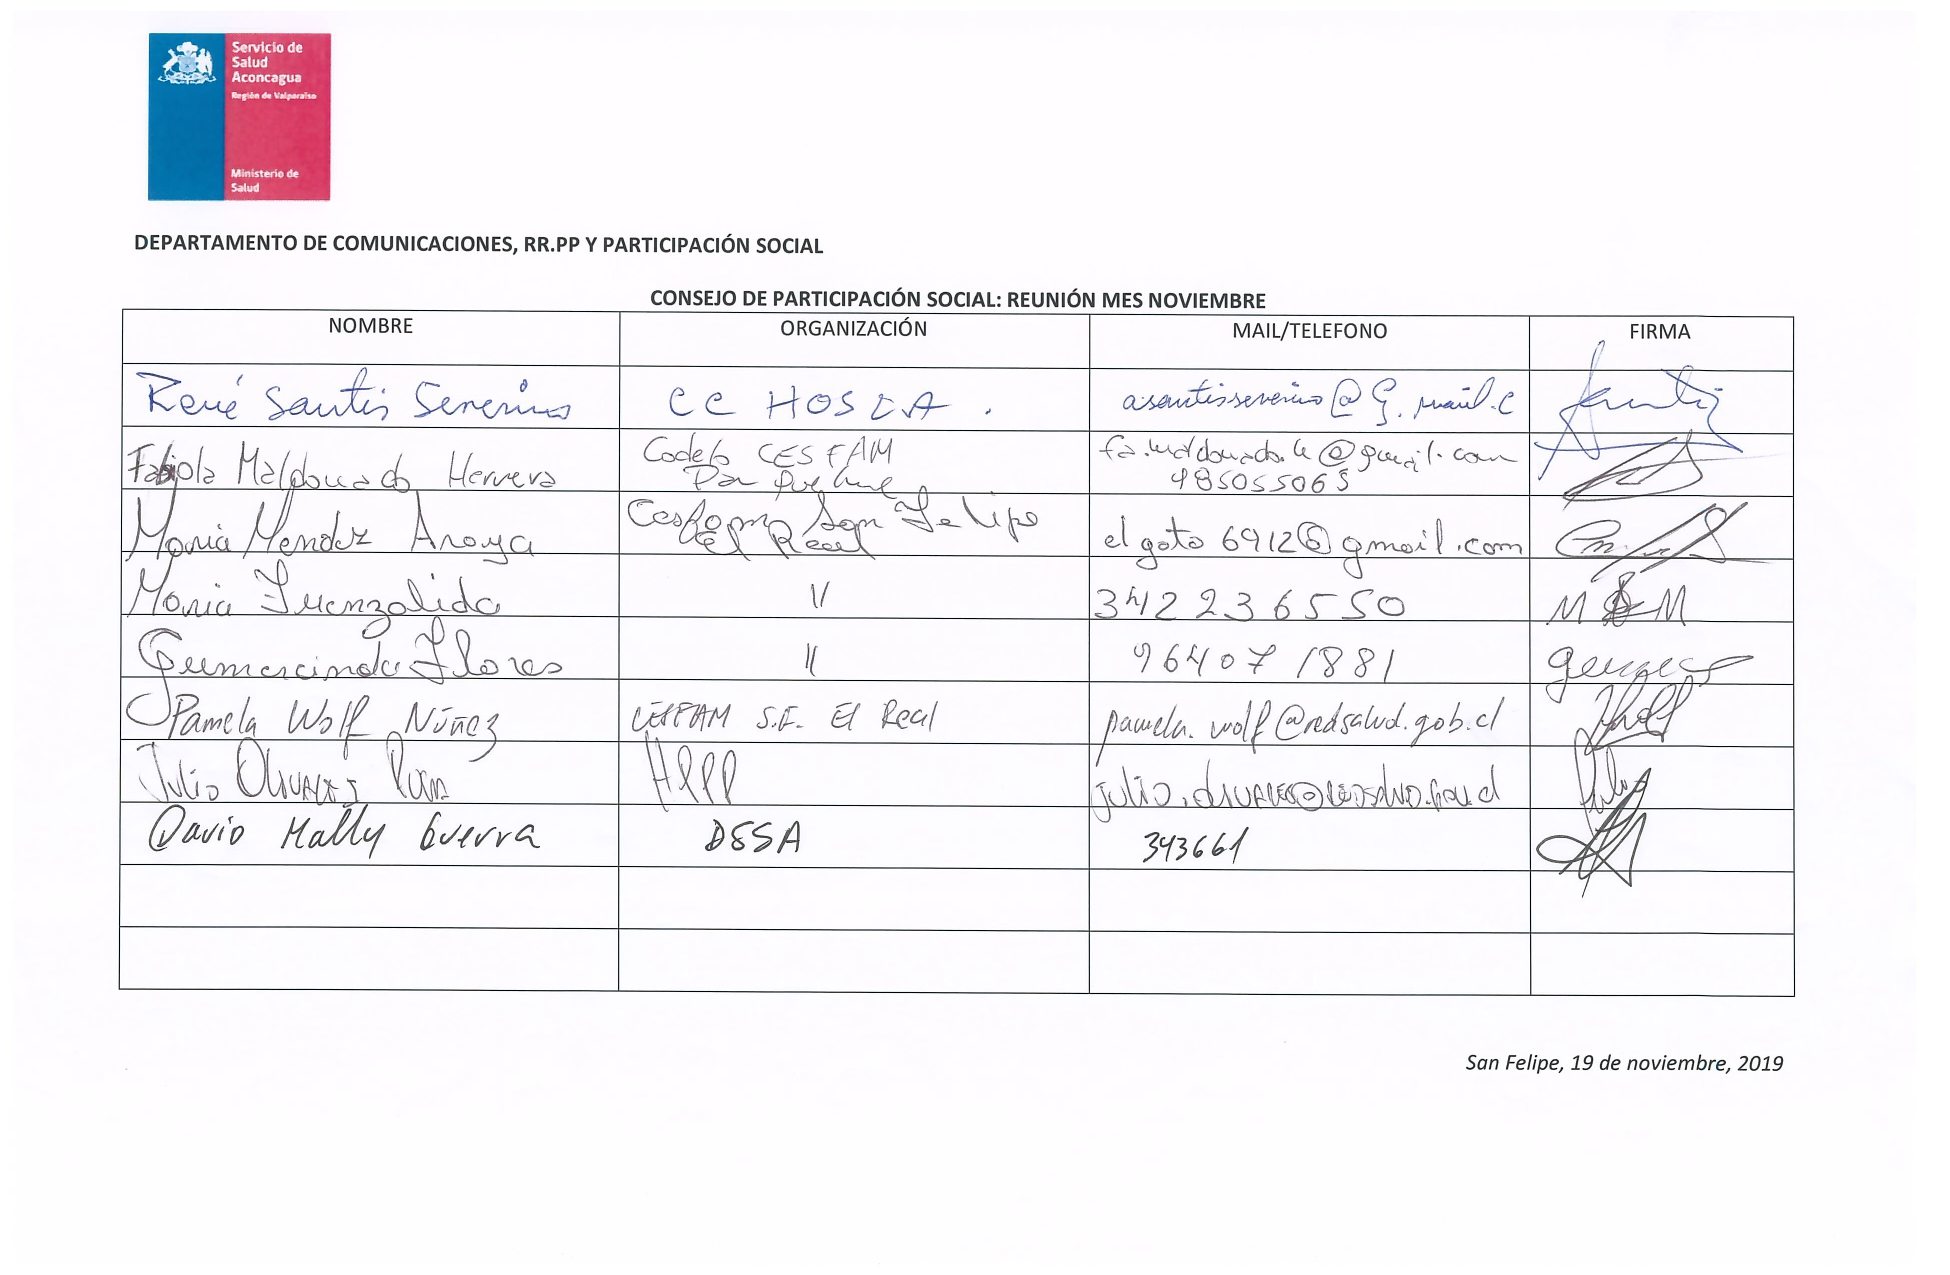 Servicio de
Salud
Aconcagua
Región de Valparaíso
Ministerio de
Salud
DEPARTAMENTO DE COMUNICACIONES, RR.PP Y PARTICIPACIÓN SOCIAL
CONSEJO DE PARTICIPACIÓN SOCIAL: REUNIÓN MES NOVIEMBRE
NOMBRE ORGANIZACIÓN MAIL/TELEFONO FIRMA
René Santis Severino CC HOSLA. asantisseverino@G.mail.c
Fabiola Maldonado Herrera Codelo CESFAM fa.maldonado.h@gmail.com
985055065
Maria Mendez Araya Cesfam San Felipe el goto 6912@gmail.com
El Real
Maria Fuenzalida 11 342236550 M M
Gumercindo Flores 11 964071881
Pamela Wolf Núñez CESFAM S.F. El Real pamela.wolf@redsalud.gob.cl
Julio Olivares HPPP
David Mally Guerra DSSA 343661
San Felipe, 19 de noviembre, 2019